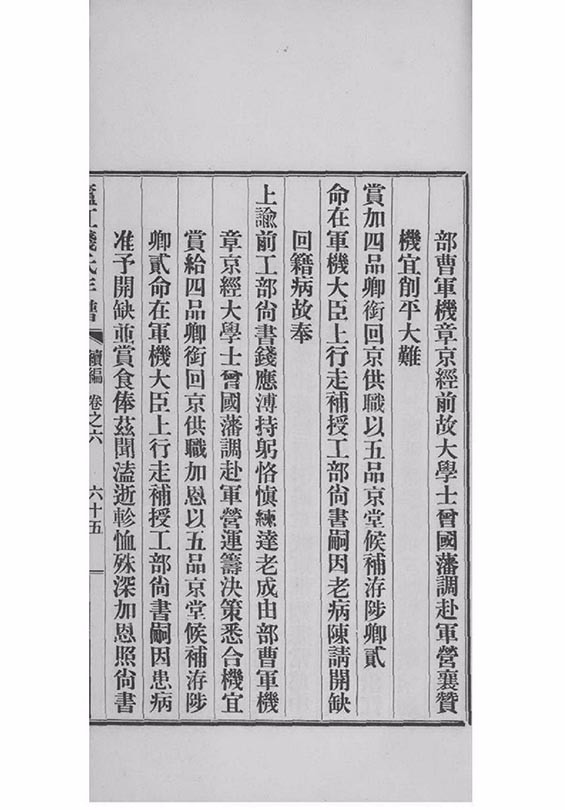 部曹軍機章京經前故大學士曾國藩調赴軍營襄贊
機宜創平大難
賞加四品卿銜回京供職以五品京堂候補洊陟卿貳
命在軍機大臣上行走補授工部尙書嗣因老病陳請開缺
回籍病故奉
上諭前工部尙書錢應溥持躬恪愼練達老成由部曹軍機
章京經大學士曾國藩調赴軍營運籌決策悉合機宜
賞給四品卿銜回京供職加恩以五品京堂候補洊陟
卿貳命在軍機大臣上行走補授工部尙書嗣因患病
准予開缺並賞食俸茲聞溘逝軫恤殊深加恩照尙書
廬江錢氏年譜 續編 卷之六 六十五